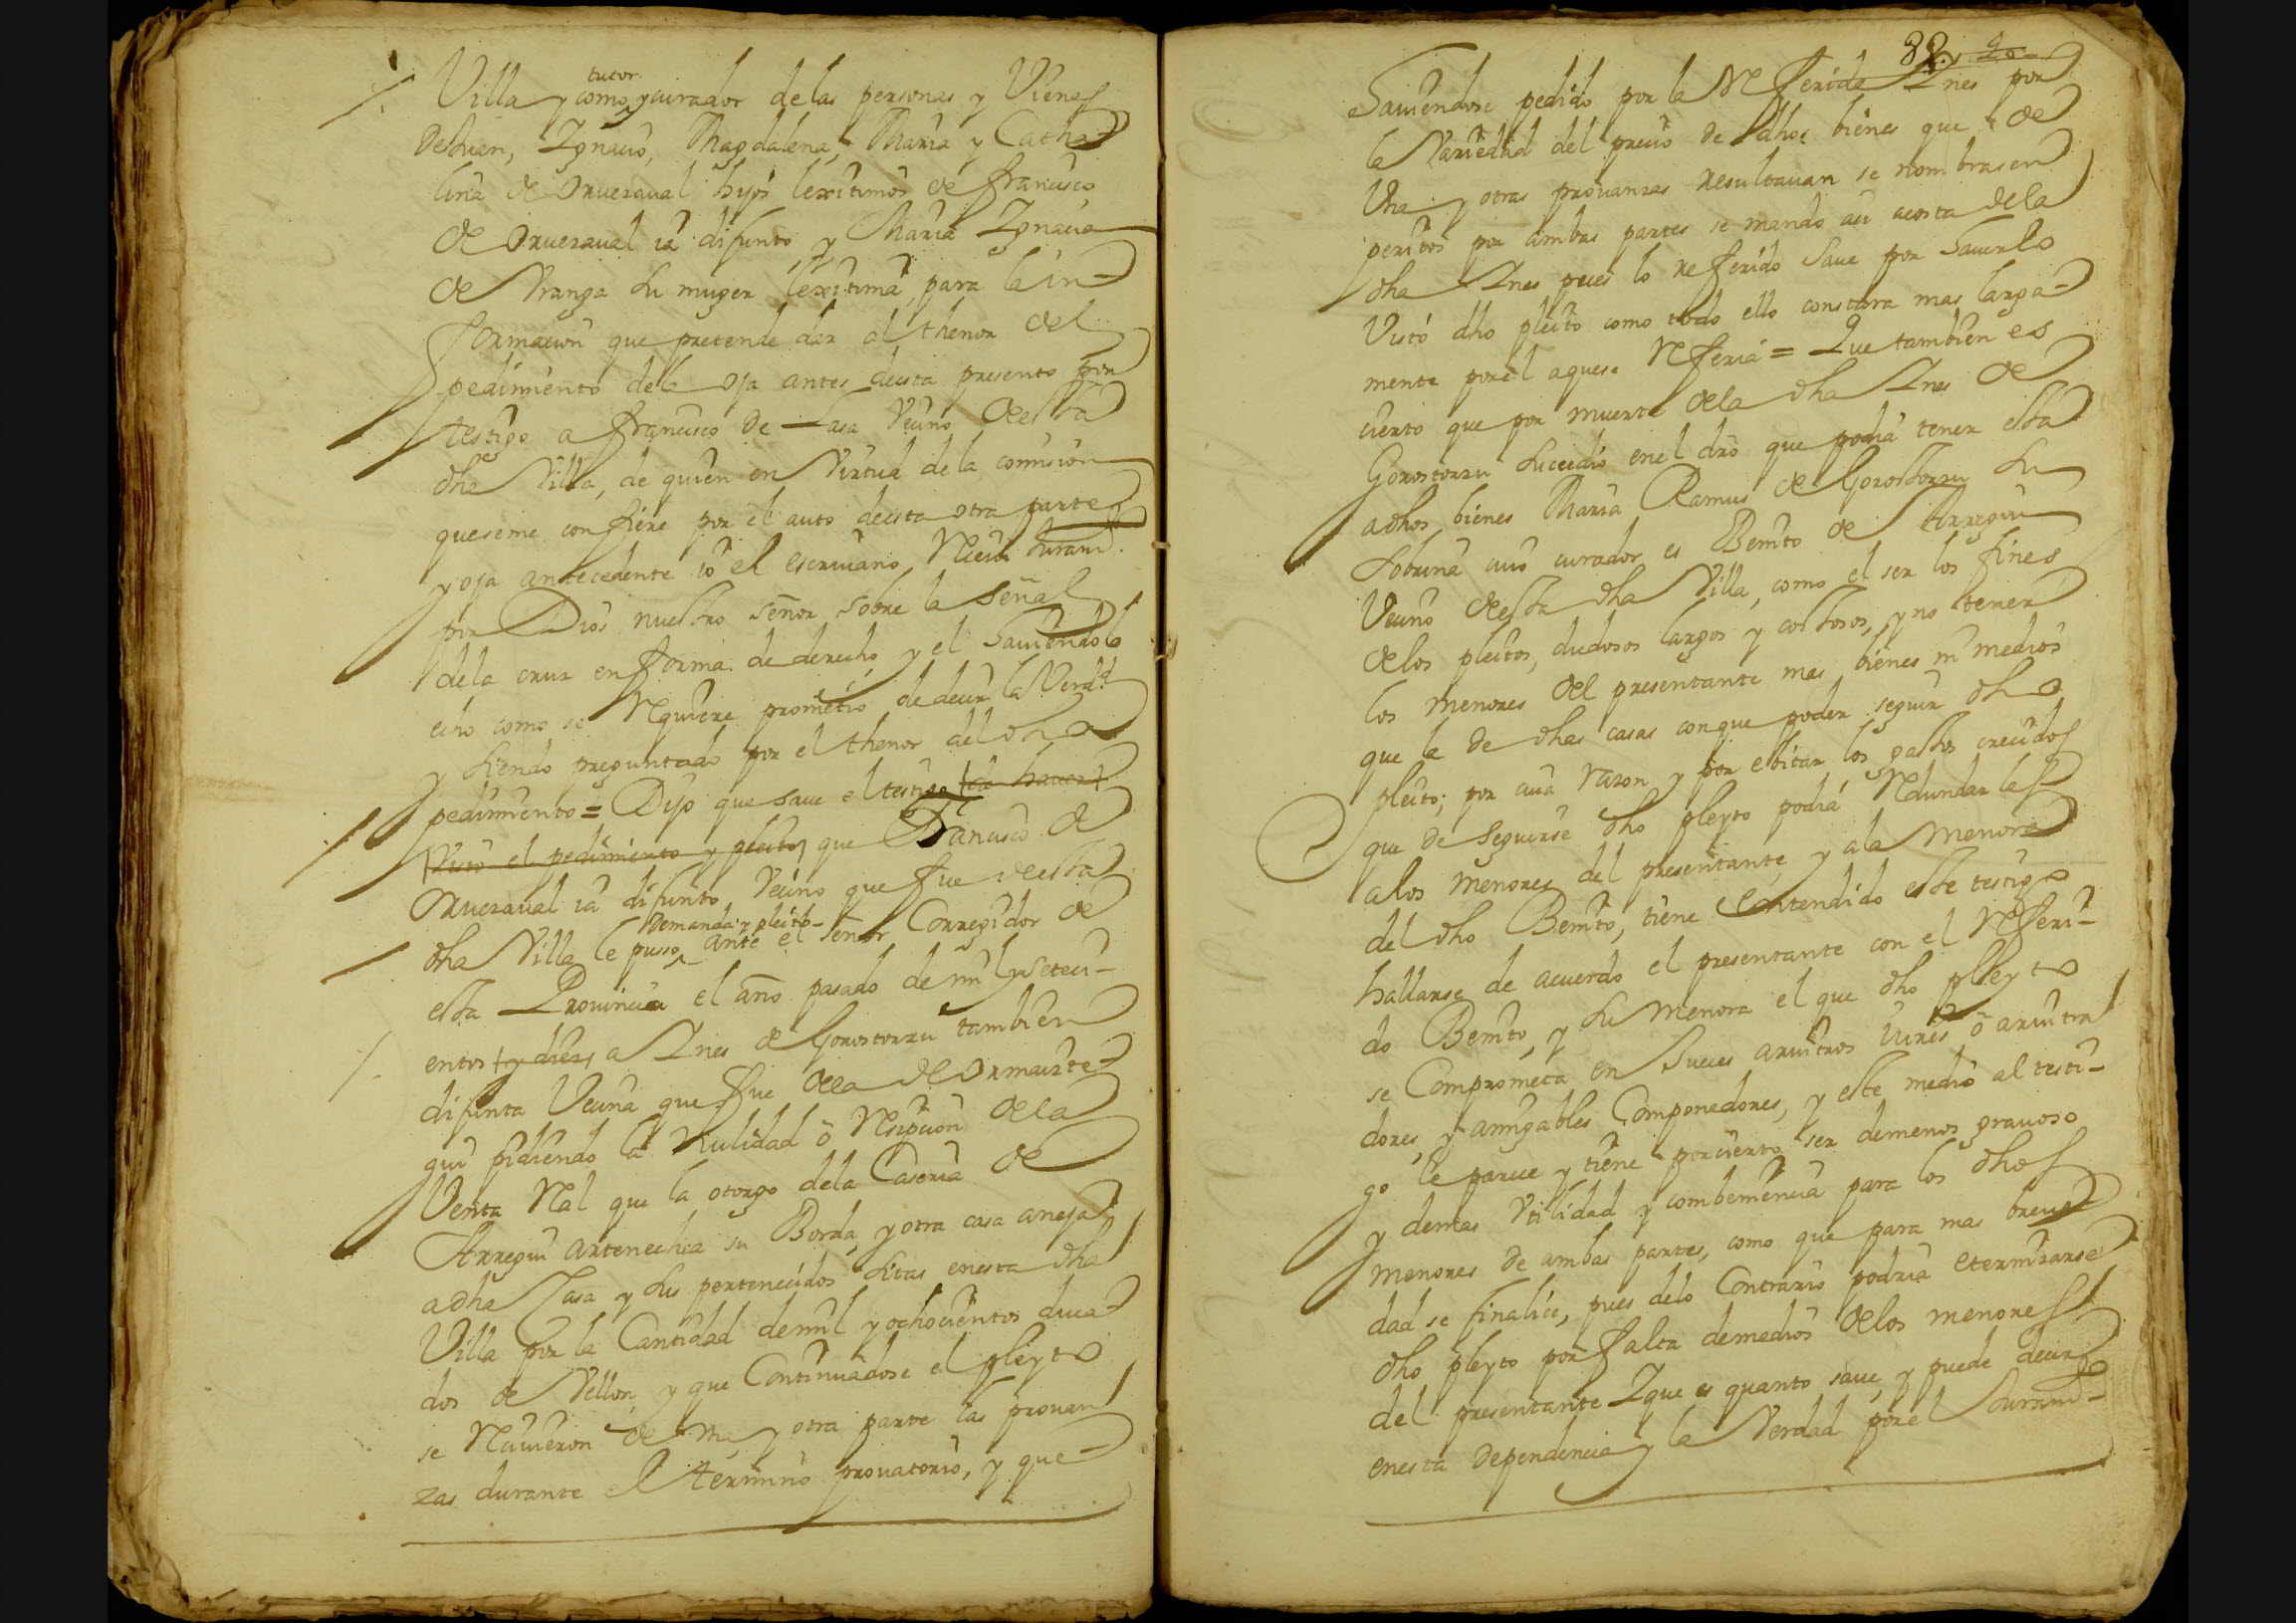 Villa y como tutor y curador de las personas y Vienes
de Juan, Ygnacio, Magdalena, Maria y Catha-
lina de Oruesaval hijos lexitimos de francisco
de Oruesaval ia difunto y Maria Ygnacia
de Vranga su muger lexitima, para la in-
formacion que pretende dar al thenor del
pedimiento dela oja antes desta presento por
testigo a francisco de Lasa Vecino desta
dha Villa, de quien en Virtud dela comision
queseme confiere por el auto desta otra parte
y oja antecedente io el escriuano, Reciui Juram.to
por Dios nuestro señor sobre la señal
dela cruz en forma de derecho, y el hauiendolo
echo como se Requiere prometio de decir la Verdd
y siendo preguntado por el thenor del dho
pedimiento = Dijo que saue el testigo de hauer
visto el pedimiento y pleito que Francisco de
Oruesaval ia difunto Vecino que fue desta
dha Villa le pusso Demanda y pleito ante el señor Corregidor de
esta Prouincia el año pasado de mil y seteci-
entos y diez a Ines de Gorostorzu tambien
difunta Vecina que fue dela de Ormaizte-
gui pidiendo la Nulidad o Resicion dela
Venta Real que la otorgo dela Caseria de
Arregui artenechea su Borda, y otra casa aneja
adha Casa y sus pertenecidos sitas enesta dha
Villa por la Cantidad de mil y ochocientos duca-
dos de Vellon, y que Continuadose el pleyto
se Reciuieron de vna, y otra parte las prouan
zas durante el termino prouatorio, y que
88
Hauiendose pedido por la Referida Ines por
la Variedad del precio de dhos bienes que de
Vna y otras prouanzas resultauan se nombrasen
peritos por ambas partes se mando asi acosta dela
dha Ines pues lo referido saue por hauerlo
Visto dho pleito como todo ello constara mas larga-
mente porel aquese Referia = Que tambien es
cierto que por muerte dela dha Ines de
Gorostorzu sucedio enel dro que podia tener esta
adhos bienes Maria Ramus de Gorostorzu su
sobrina cuio curador es Benito de Arregui
Vecino desta dha Villa, como el ser los fines
delos pleitos, dudosos largos y costosos, y no tener
los menores del presentante mas bienes ni medios
que la de dhas casas conque poder seguir dho
pleito; por cuia razon y por ebitar los gastos crecidos
que de seguirse dho pleyto podra Redundar les
alos menores del presentante, y ala menora
del dho Benito, tiene entendido este testigo
hallarse de acuerdo el presentante con el Referi-
do Benito, y su menora el que dho pleyto
se Comprometa en Jueces aruitros iuris o aruitra
dores, y amigables Componedores, y este medio al testi-
go le parece y tiene porcierto ser demenos grauoso
y demas Vtilidad y combeniencia para los dhos
menores de ambas partes, como que para mas breue-
dad se finalice, pues delo Contrario podria eternizarse
dho pleyto por falta demedios delos menores
del presentante Y que es quanto saue y puede decir
enesta dependencia y la Verdad porel Juram-